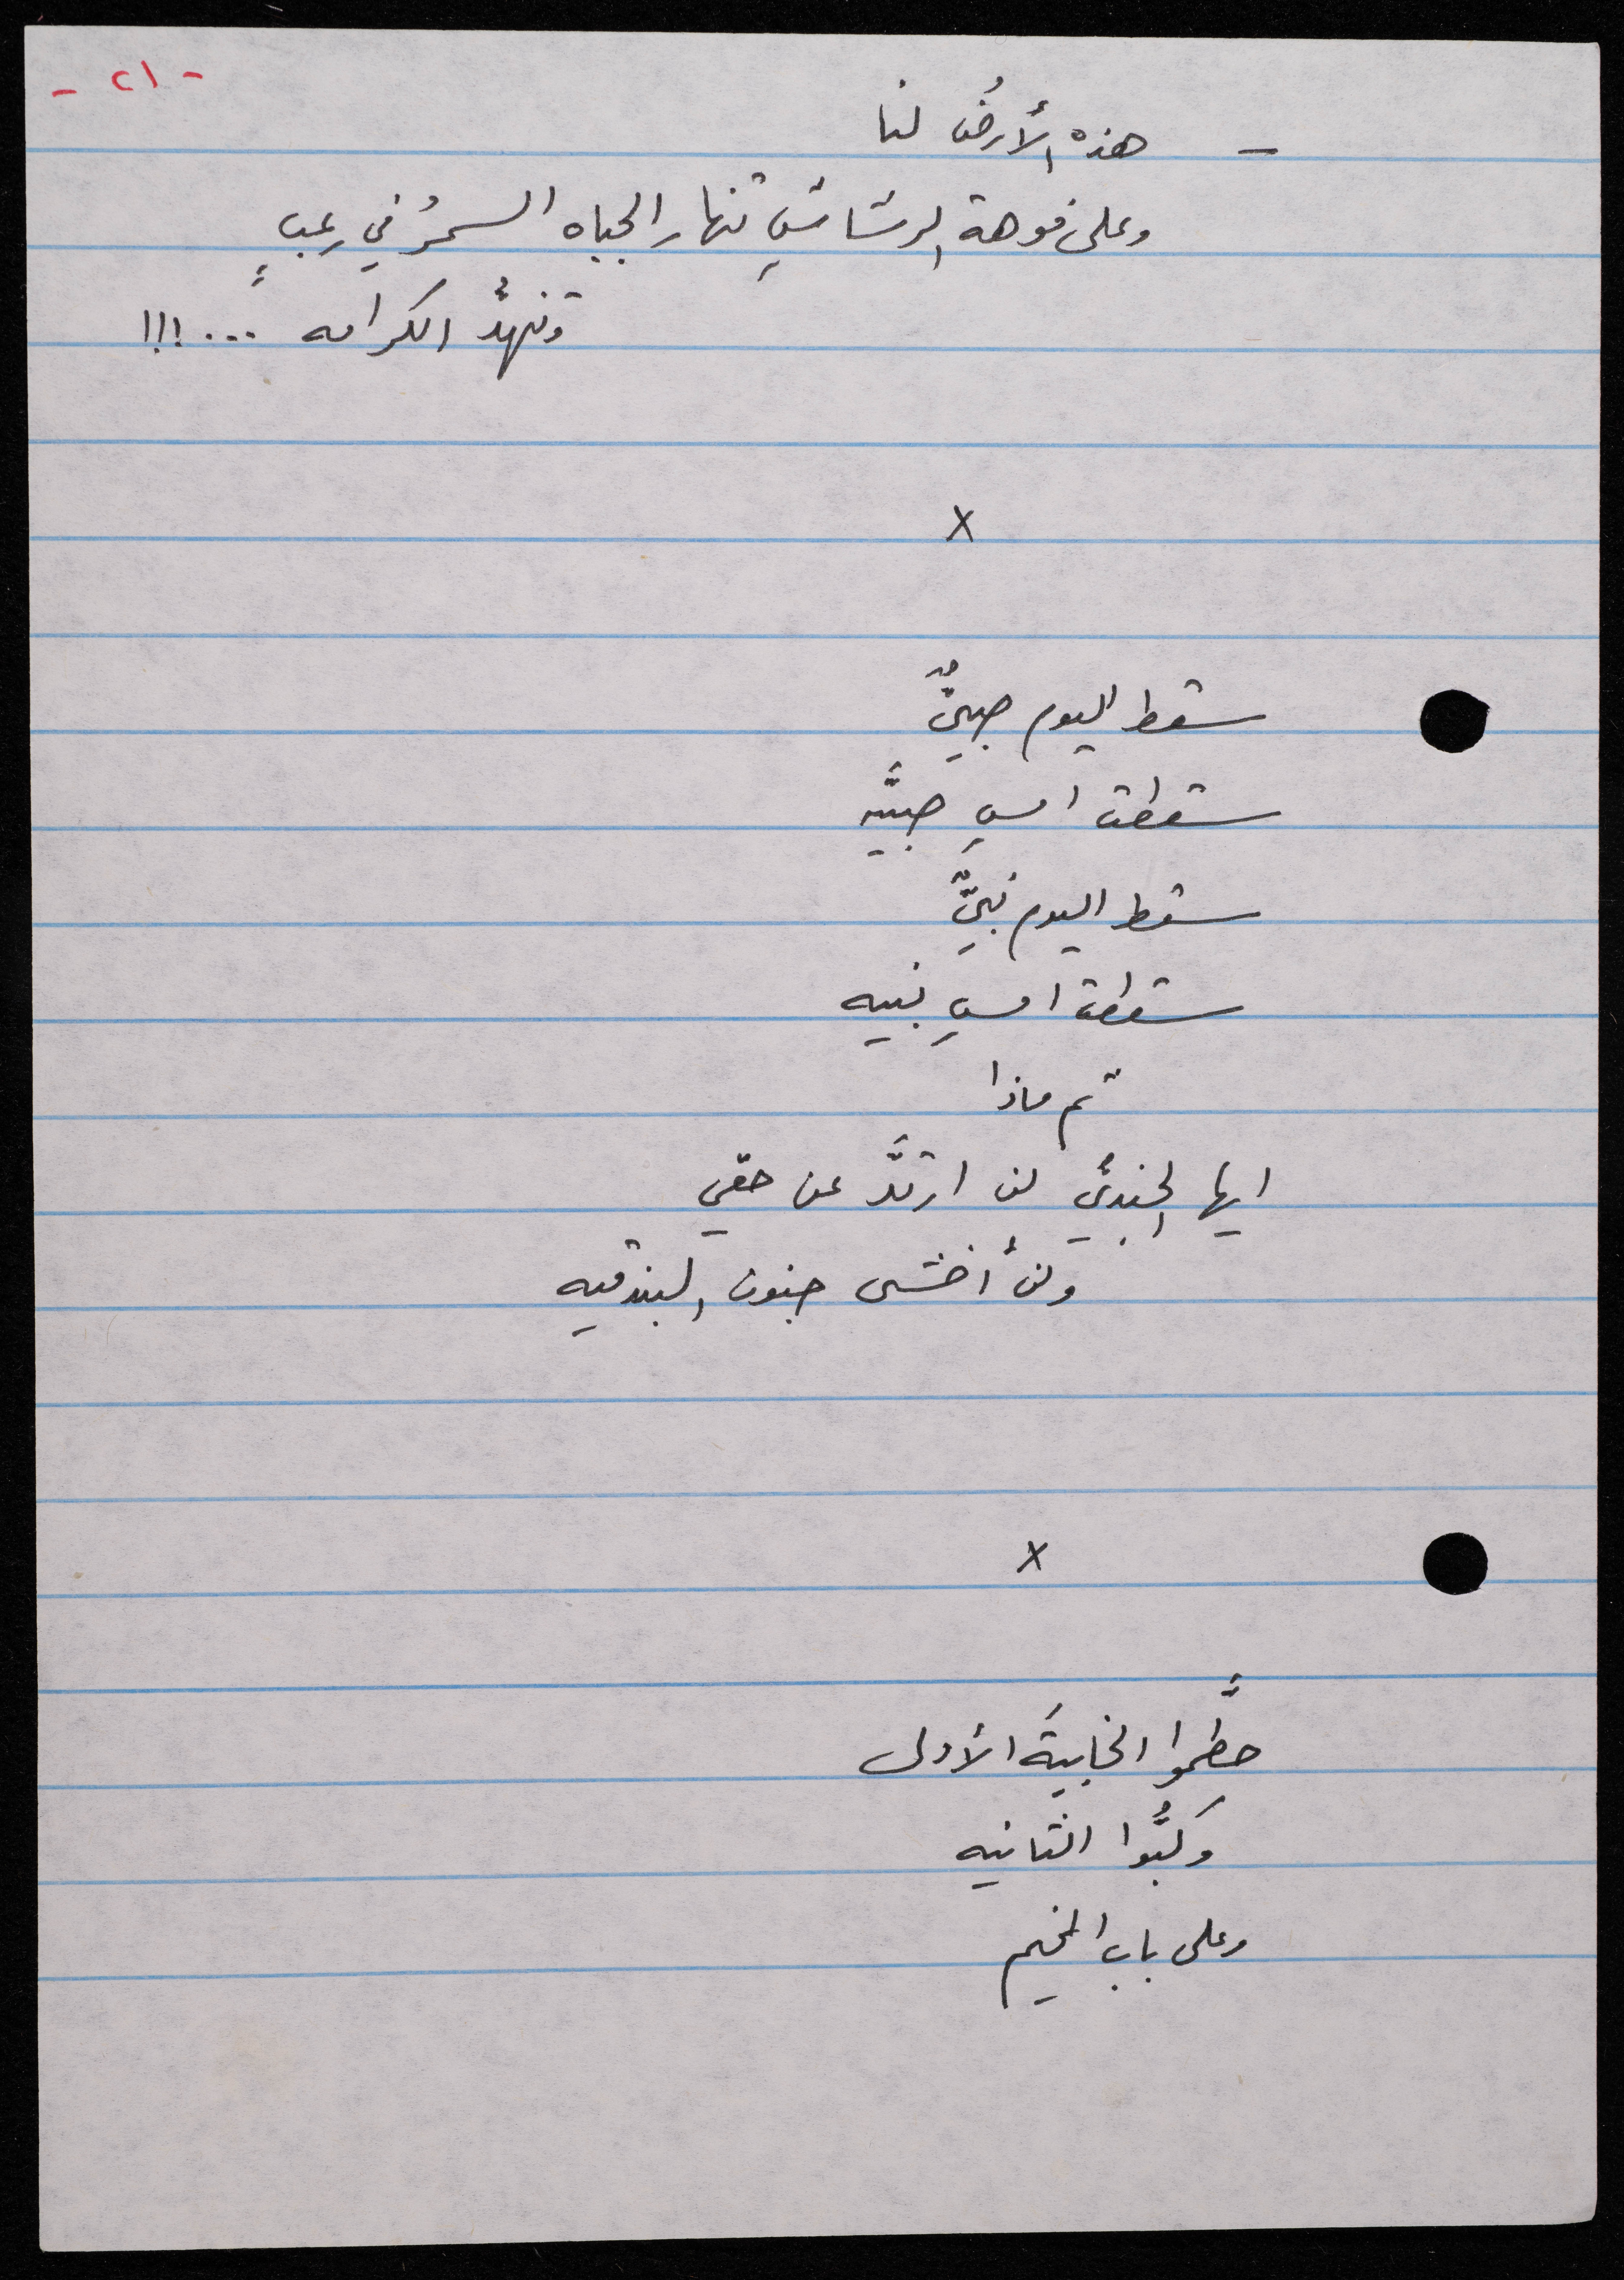 - ٢١ -
- هذه الأرضُ لنا
وعلى فوهة الرشاشِ تنهار الجباه السمرُ في رعبٍ
وتنهدُّ الكرامه ... !!!
x
سقط اليوم صبيٌّ
سقطت امسِ صبيَّه
سقط اليوم نبيٌّ
سقطت امسِ نبيه
ثم ماذا
ايها الجنديُّ لن ارتدَّ عن حقي
ولن أخشى جنون البندقيه
x
حطَّموا الخابيةَ الأولى
وَكبُّوا الثانيه
وعلى باب المخيم